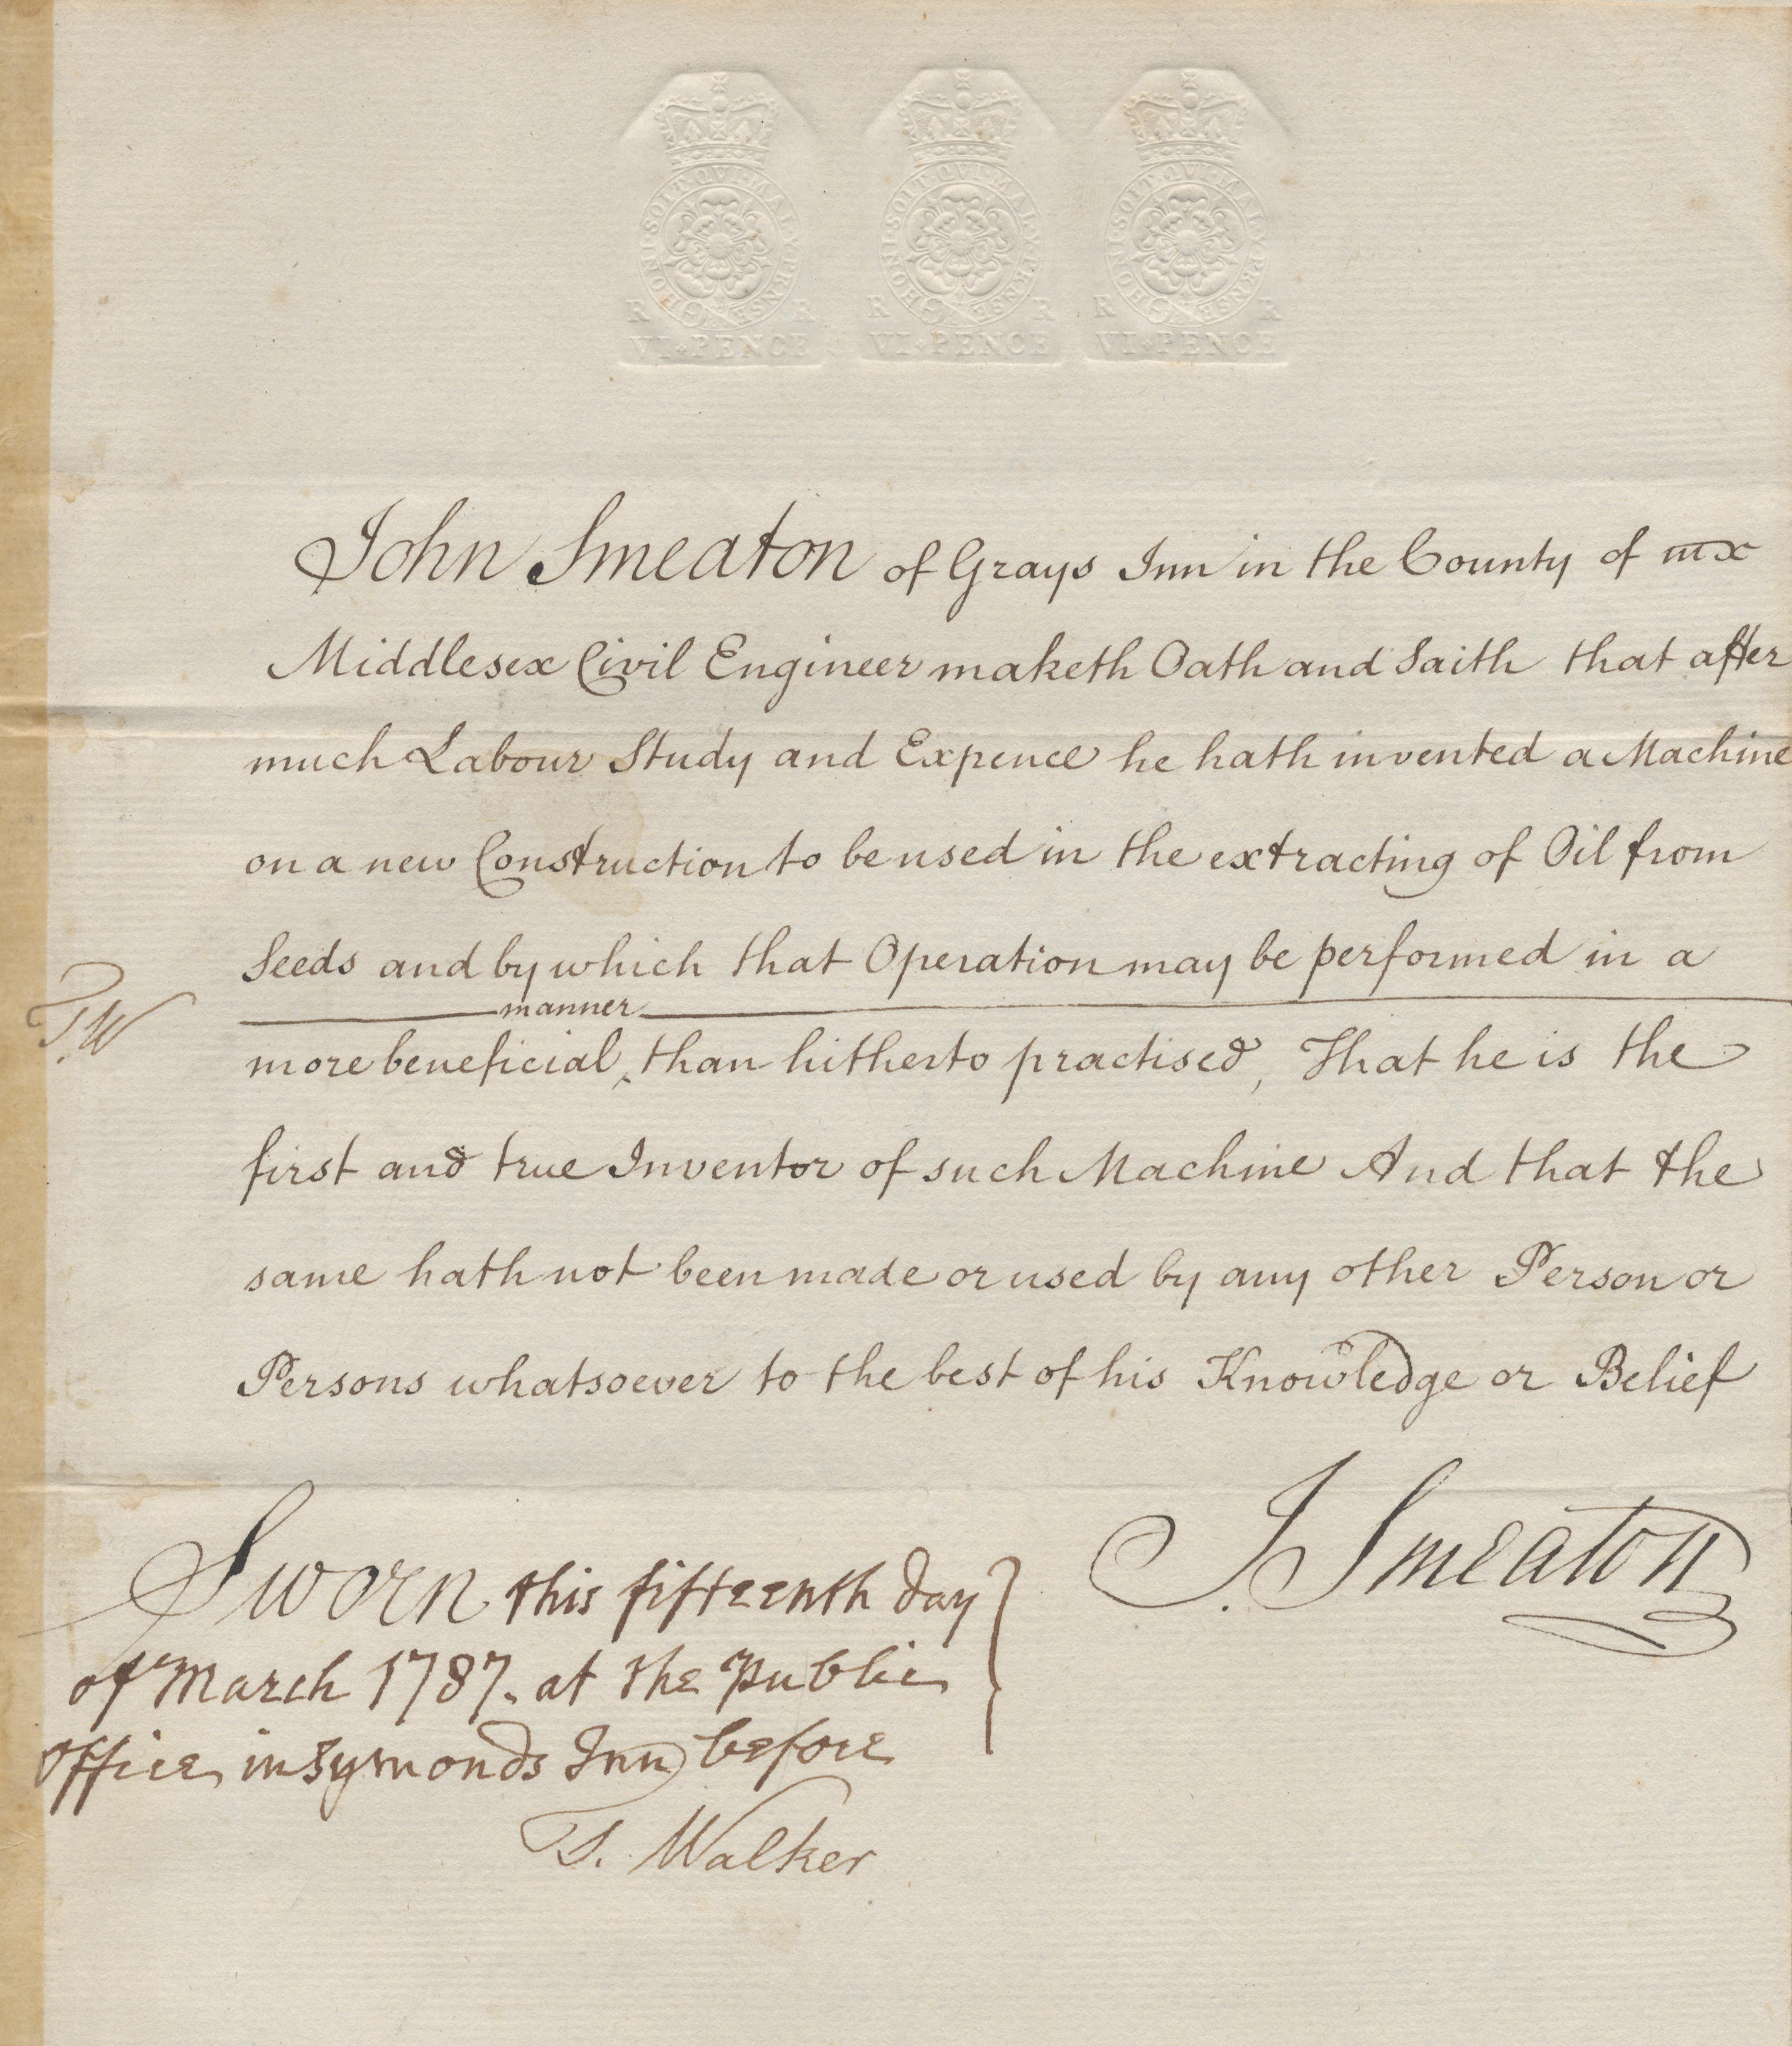 HONI·SOIT·QVI·MAL·Y·PENSE HONI·SOIT·QVI·MAL·Y·PENSE HONI·SOIT·QVI·MAL·Y·PENSE
R R R R R R
VI·PENCE VI·PENCE VI·PENCE
John Smeaton of Grays Inn in the County of mx
Middlesex Civil Engineer maketh Oath and Saith that after
much Labour Study and Expence he hath invented a Machine
on a new Construction to be used in the extracting of Oil from
Seeds and by which that Operation may be performed in a
manner
T.W
more beneficial ‸ than hitherto practised, That he is the
first and true Inventor of such Machine And that the
same hath not been made or used by any other Person or
Persons whatsoever to the best of his Knowledge or Belief
J. Smeaton
Sworn this fifteenth day
of March 1787. at the Public
Office in Symonds Inn before
T. Walker